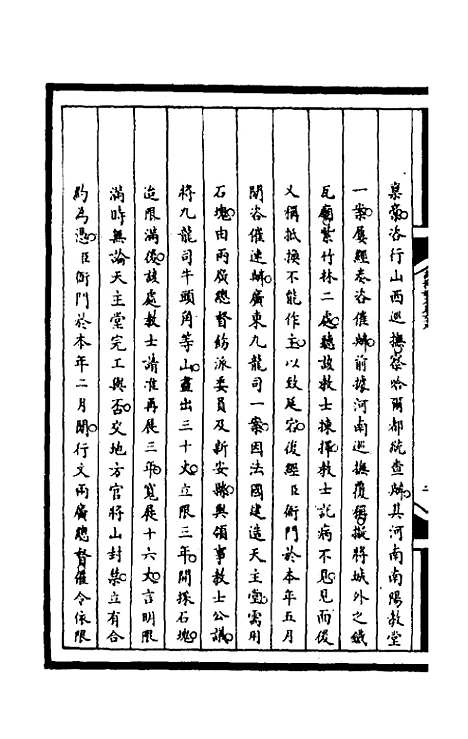 稟帝咨行山西巡撫察哈爾都統查辦其河南南陽教堂
一案屢經奏咨催辦前據河南巡撫覆稱擬將城外之鐵
瓦廟紫竹林二處聽該教士揀擇教士託病不見見而後
又稱抵換不能作主以致延宕復經臣衙門於本年五月
間咨催速辦廣東九龍司一案因法國建造天主堂需用
石塊由兩廣總督飭派委員及新安縣與領事教士公議
將九龍司牛頭角等山畫出三十丈立限三年開採石塊
迨限滿後該處教士請准再展三年寬展十六丈言明限
滿時無論天主堂完工與否交地方官將山封禁立有合
約為憑臣衙門於本年二月間行文兩廣總督催令依限